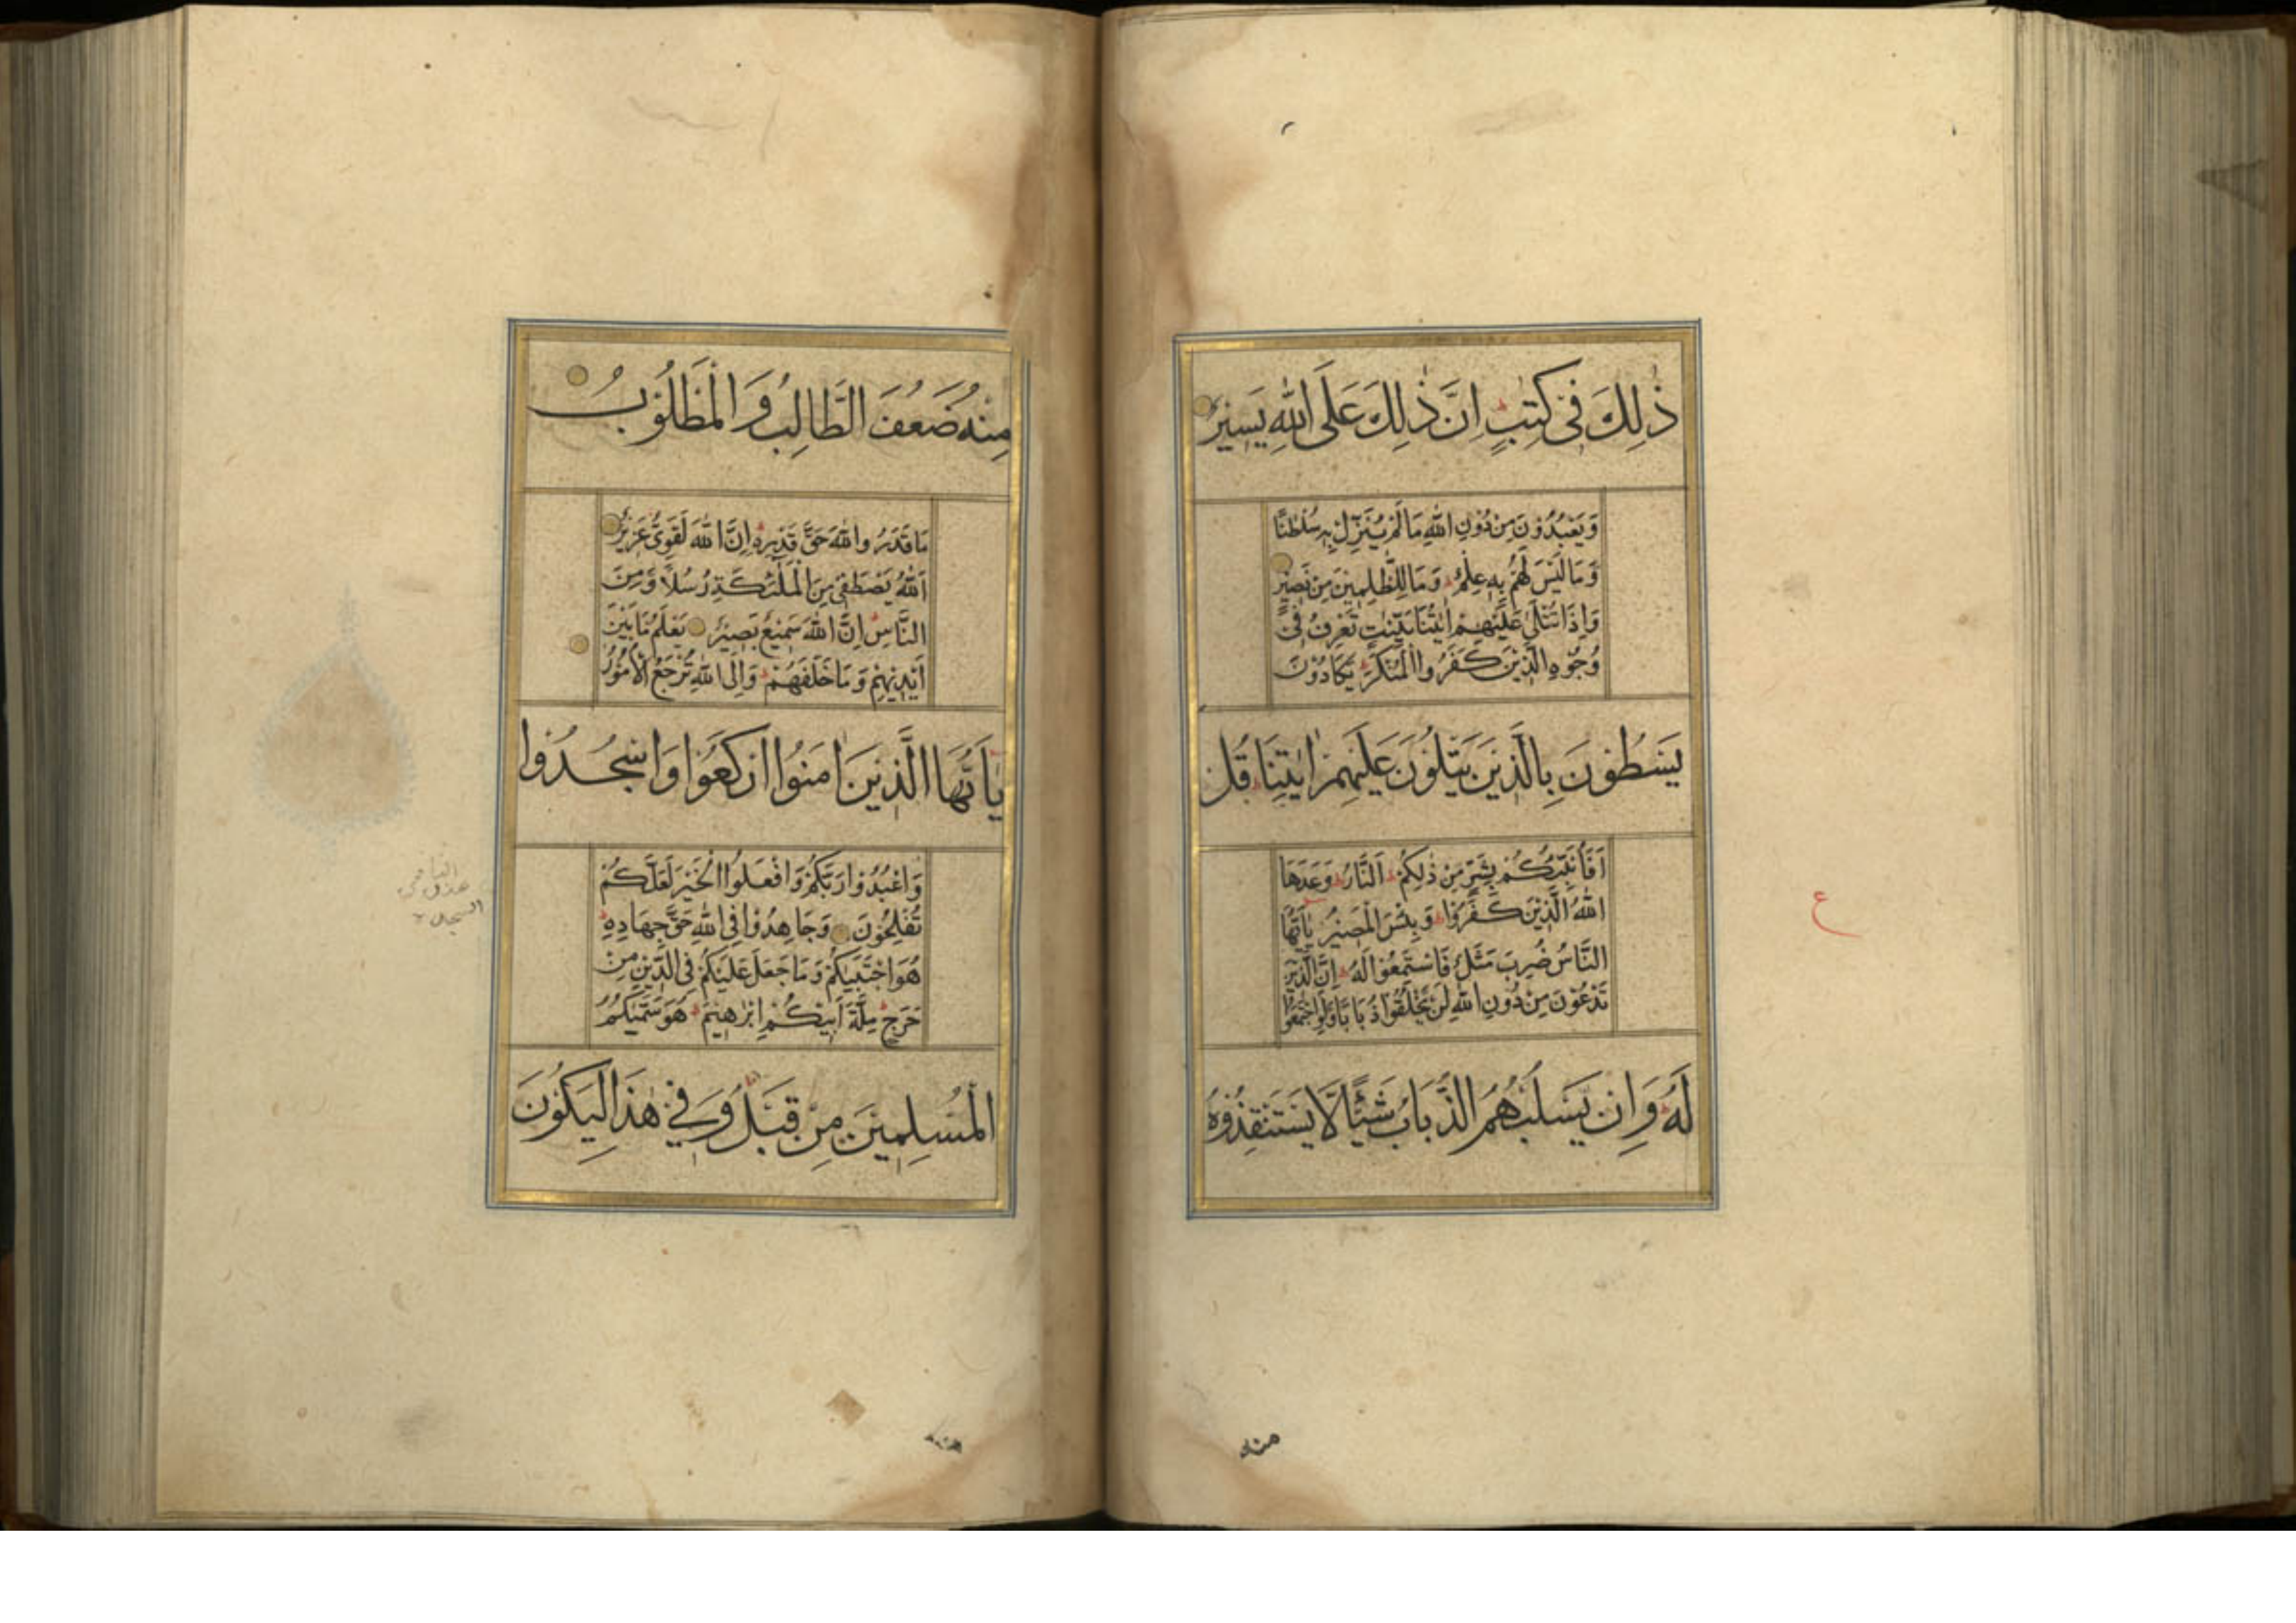 ذٰلِكَ فِى كِتٰبٍ اِنَّ ذٰلِكَ عَلَى اللّٰهِ يَسِيْرٌ
وَيَعْبُدُوْنَ مِنْ دُوْنِ اللّٰهِ مَا لَمْ يُنَزِّلْ بِهٖ سُلْطٰنًا
وَمَا لَيْسَ لَهُمْ بِهٖ عِلْمٌ وَمَا لِلظّٰلِمِيْنَ مِنْ نَصِيْرٍ
وَاِذَا تُتْلٰى عَلَيْهِمْ اٰيٰتُنَا بَيِّنٰتٍ تَعْرِفُ فِىْ
وُجُوْهِ الَّذِيْنَ كَفَرُوا الْمُنْكَرَ يَكَادُوْنَ
يَسْطُوْنَ بِالَّذِيْنَ يَتْلُوْنَ عَلَيْهِمْ اٰيٰتِنَا قُلْ
اَفَاُنَبِّئُكُمْ بِشَرٍّ مِنْ ذٰلِكُمْ اَلنَّارُ وَعَدَهَا
اللّٰهُ الَّذِيْنَ كَفَرُوْا وَبِئْسَ الْمَصِيْرُ يٰاَيُّهَا
النَّاسُ ضُرِبَ مَثَلٌ فَاسْتَمِعُوْا لَهُ اِنَّ الَّذِيْنَ
تَدْعُوْنَ مِنْ دُوْنِ اللّٰهِ لَنْ يَخْلُقُوْا ذُبَابًا وَلَوِ اجْتَمَعُوْا
لَهُ وَاِنْ يَسْلُبْهُمُ الذُّبَابُ شَيْئًا لَا يَسْتَنْقِذُوْهُ
ع
منه
مِنْهُ ضَعُفَ الطَّالِبُ وَالْمَطْلُوْبُ
مَا قَدَرُوا اللّٰهَ حَقَّ قَدْرِهٖ اِنَّ اللّٰهَ لَقَوِىٌّ عَزِيْزٌ
اَللّٰهُ يَصْطَفِىْ مِنَ الْمَلٰٓئِكَةِ رُسُلًا وَمِنَ
النَّاسِ اِنَّ اللّٰهَ سَمِيْعٌ بَصِيْرٌ يَعْلَمُ مَا بَيْنَ
اَيْدِيْهِمْ وَمَا خَلْفَهُمْ وَاِلَى اللّٰهِ تُرْجَعُ الْاُمُوْرُ
يٰاَيُّهَا الَّذِيْنَ اٰمَنُوا ارْكَعُوْا وَاسْجُدُوْا
وَاعْبُدُوْا رَبَّكُمْ وَافْعَلُوا الْخَيْرَ لَعَلَّكُمْ
تُفْلِحُوْنَ وَجَاهِدُوْا فِى اللّٰهِ حَقَّ جِهَادِهٖ
هُوَ اجْتَبٰيكُمْ وَمَا جَعَلَ عَلَيْكُمْ فِى الدِّيْنِ مِنْ
حَرَجٍ مِلَّةَ اَبِيْكُمْ اِبْرٰهِيْمَ هُوَ سَمّٰيكُمُ
الْمُسْلِمِيْنَ مِنْ قَبْلُ وَفِىْ هٰذَا لِيَكُوْنَ